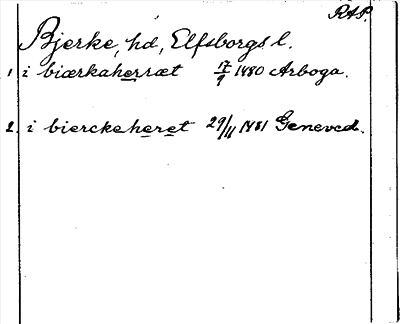 RAP.
Bjerke, hd, Elfsborgs l.
1. i biærkaherræt 17/9 1480 Arboga.
2. i bierckeheret 29/11 1481 Geneved.